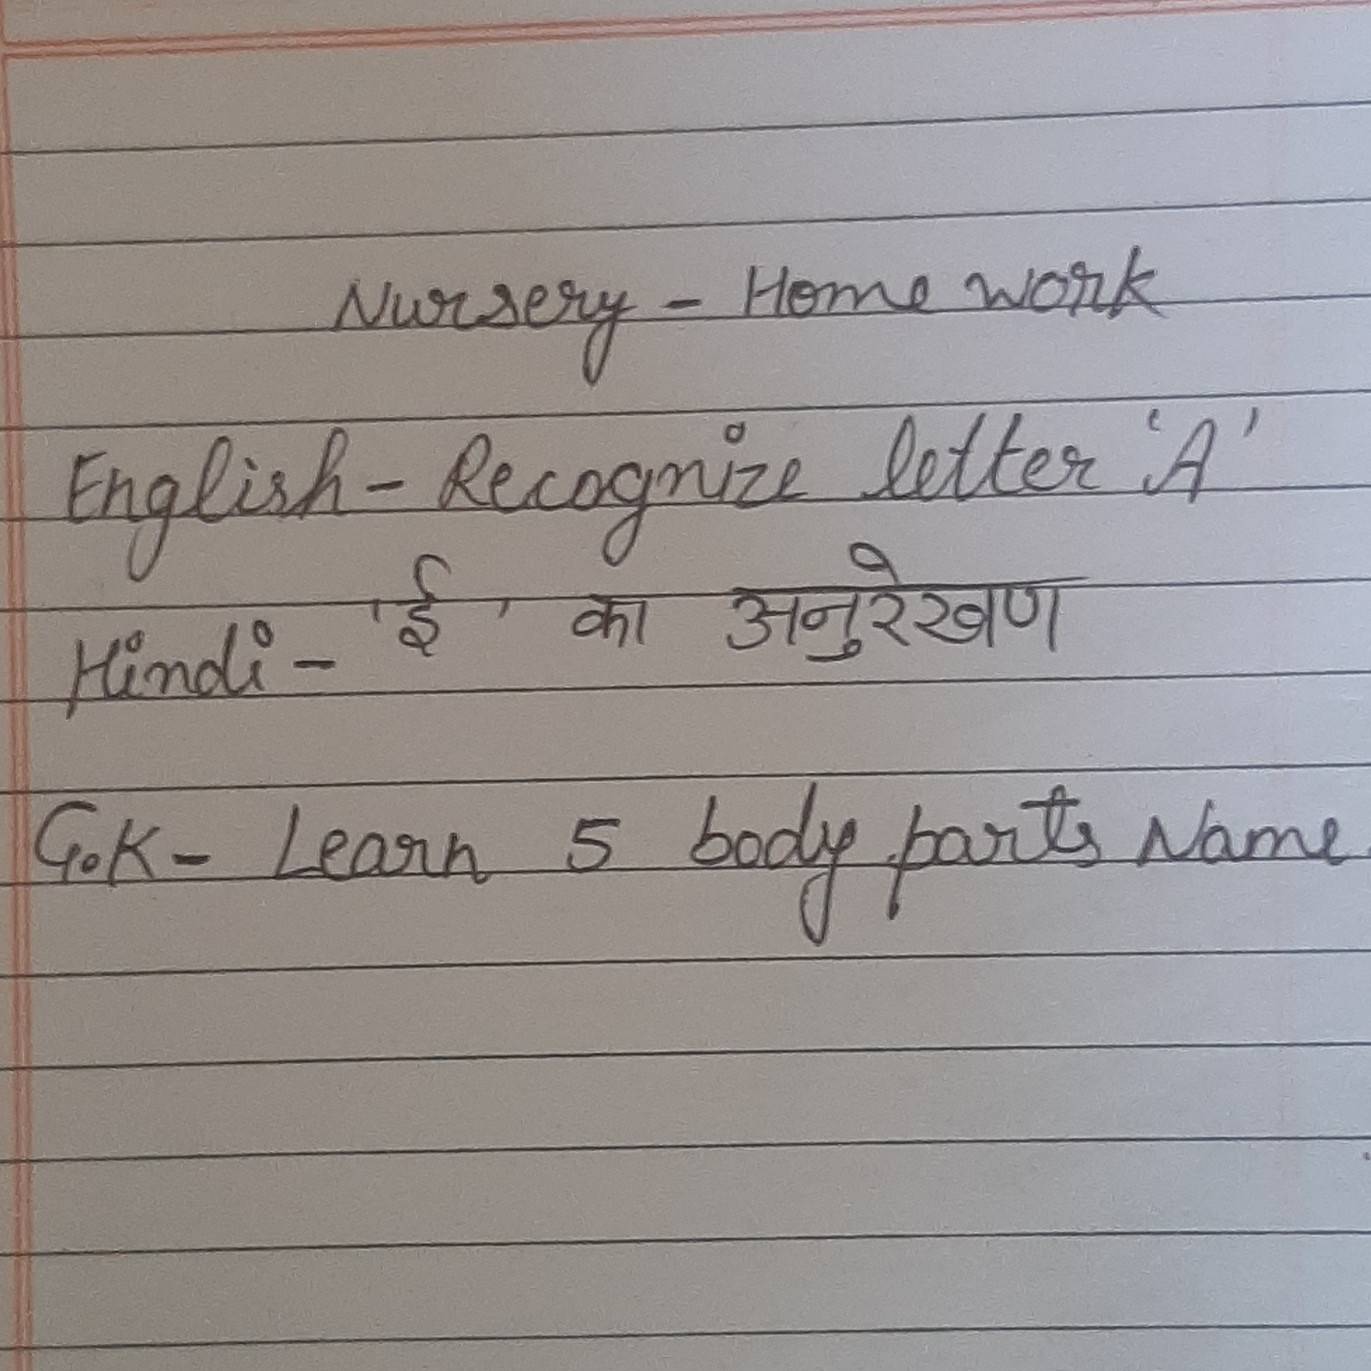 Nursery - Home work
English - Recognize letter 'A'
Hindi - 'ई' का अनुरेखण
G.K - Learn 5 body parts Name